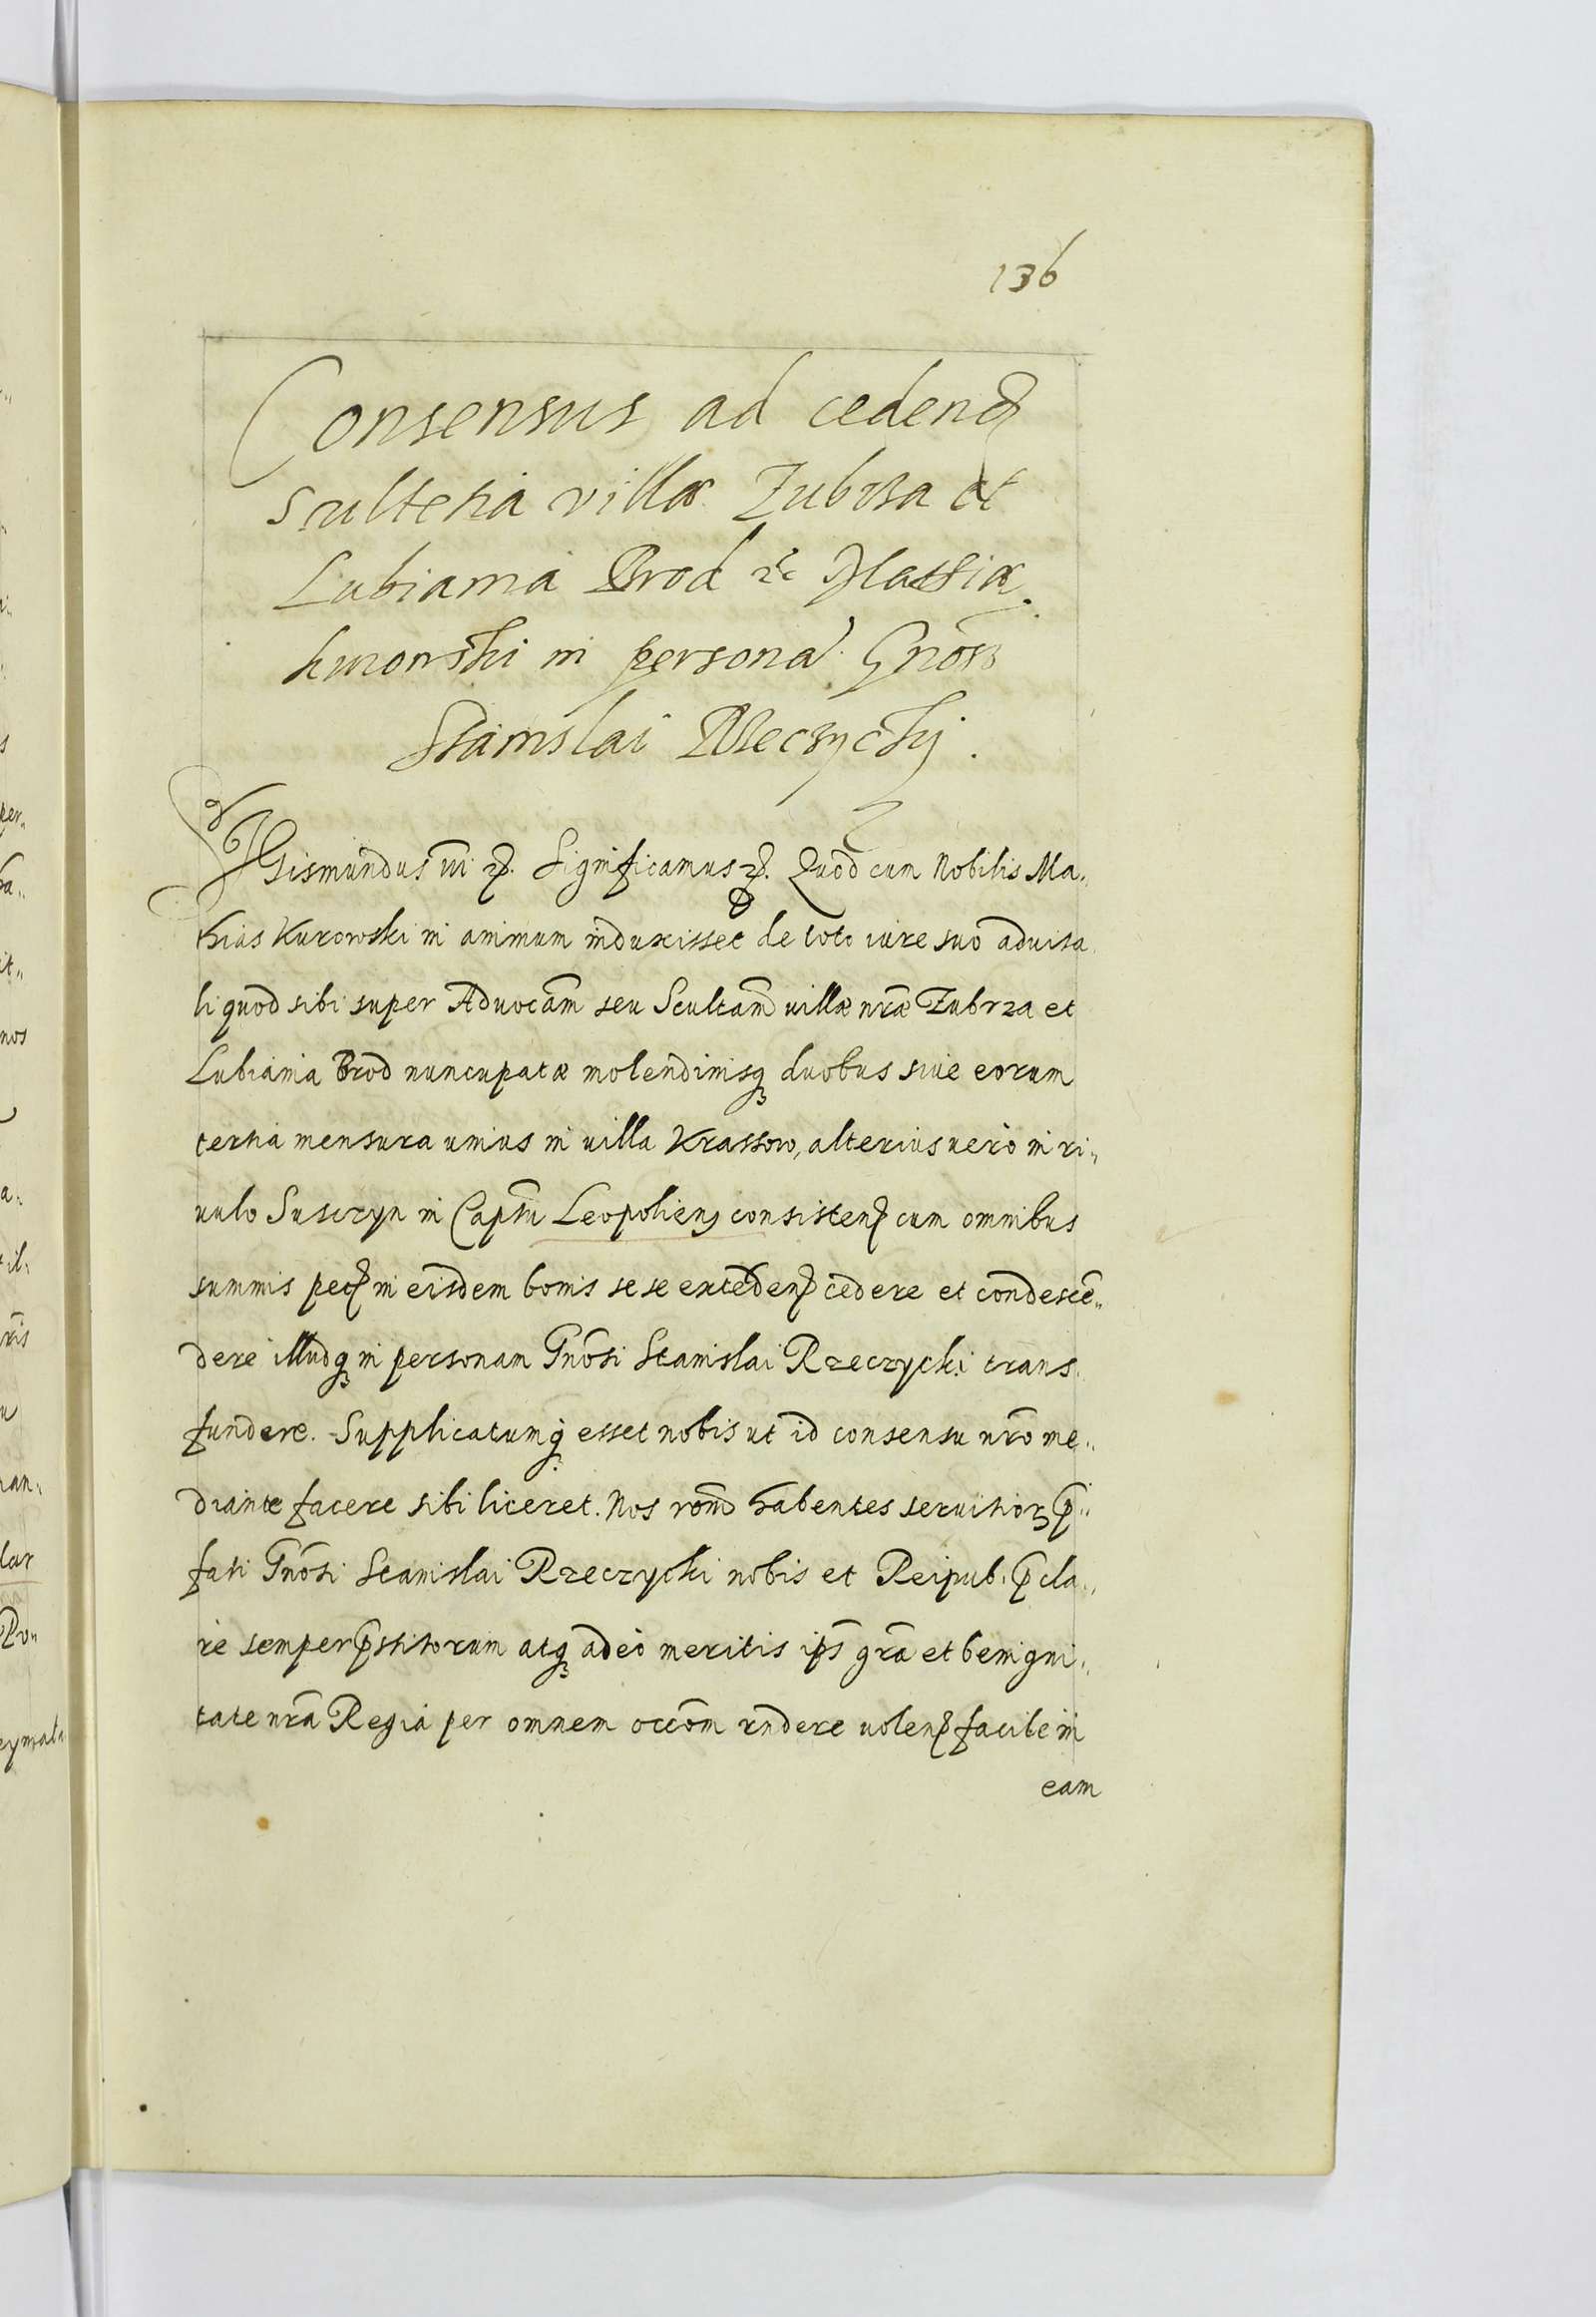 136
Consensus ad cedend
sculteria villæ Zubrza et
Lubiania Brod &c Mathiæ
kurowski in persona Gnosi
Stanislai Rzeczycky.
Sigismundus III &. Significamus &. Quod cum Nobilis Ma„
thias Kurowski in animum induxisset de toto iure suo aduita„
li quod sibi super Aduocãm seu Scultãm villæ nrãe Zubrza et
Lubiania Brod nuncupatæ molendinisq̃ duobus siue eorum
tertia mensura unius in uilla Krassow, alterius uero in ri„
uulo Susczyn in Captũ Leopolien consisten cum omnibus
summis pec in eisdem bonis se se extenden cedere et condescẽ„
dere illudq̃ in personam Gnõsi Stanislai Rzeczycki trans„
fundere. Supplicatumq̃ esset nobis ut id consensu nrõ me„
diante facere sibi liceret. Nos rõm habentes seruitior p̃„
fati Gnõsi Stanislai Rzeczycki nobis et Reipub. p̃cla„
re semper p̃stitorum atq̃ adeo meritis ips̃ grã et benigni„
tate nrã Regia per omnem occõm rñdere uolen facile in
eam